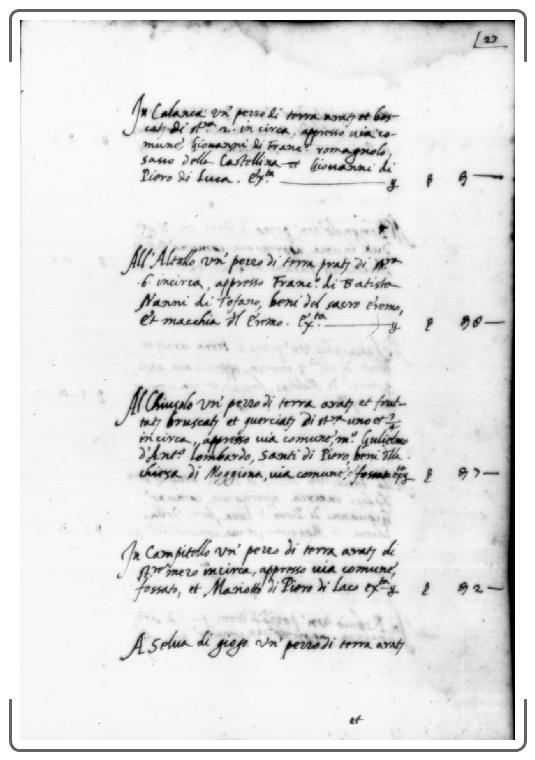 27
In Calanca un' pezzo di terra arati et bos-
cati di st.ra 2. in circa, appresso via co-
mune, Giovanni di Franc.o romagnolo,
sasso della Castellina et Giovanni di
Piero di Luca.
All'Altallo un' pezzo di terra prati di st.ra
6 incirca, appresso Franc.o di Batista
Nanni di Tofano, beni del sacro eremo,
et macchia dl' Eremo.
Al Chiusolo un' pezzo di terra arati et frut-
tati bruscati et querciati di st.ra uno et
incirca, appresso via comune, m.o Gulielmo
d'Ant.o lombardo, Santi di Piero, beni dlla
chiesa di Moggiona, via comune, fossat
In Campitello un' pezzo di terra arati di
st.ro mezo incirca, appresso via comune,
fossato, et Mariotto di Piero di Laco
A Selva di giogo. un' pezzo di terra arati
et